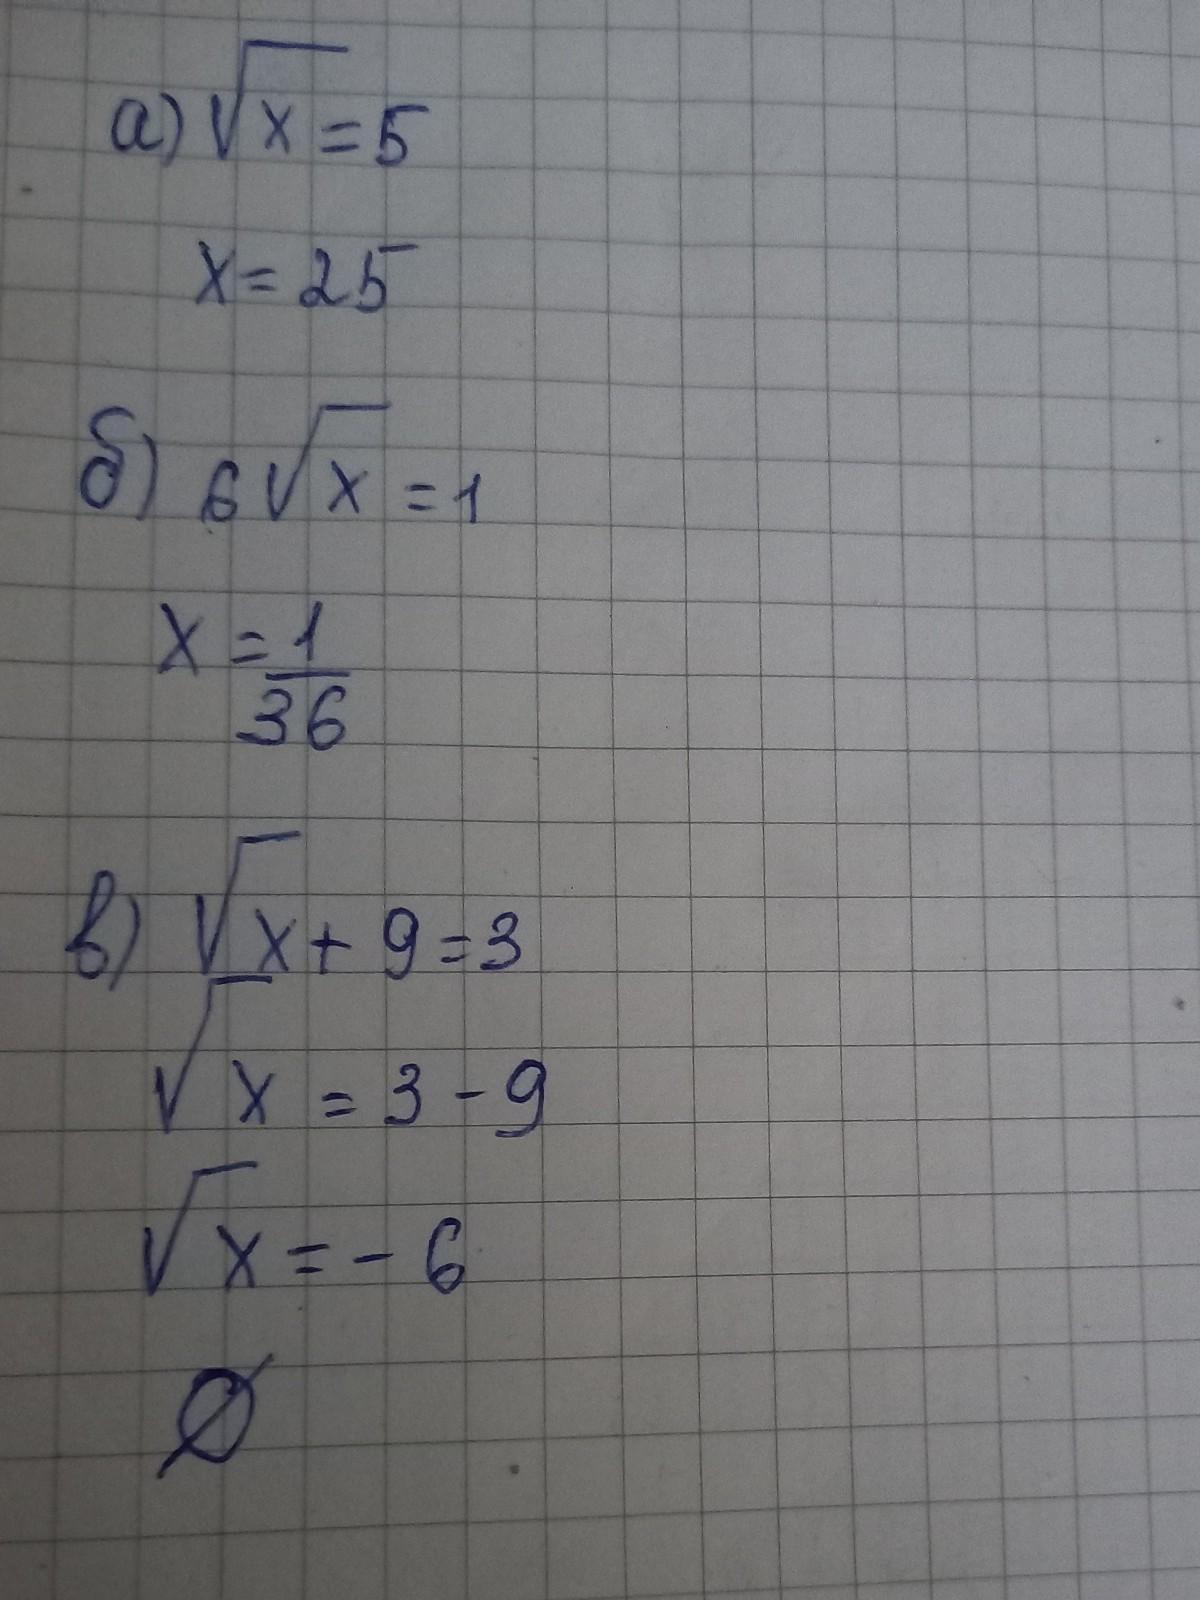 а) √x = 5
x = 25
б) 6√x = 1
x = 1/36
в) √x + 9 = 3
√x = 3 - 9
√x = - 6
∅